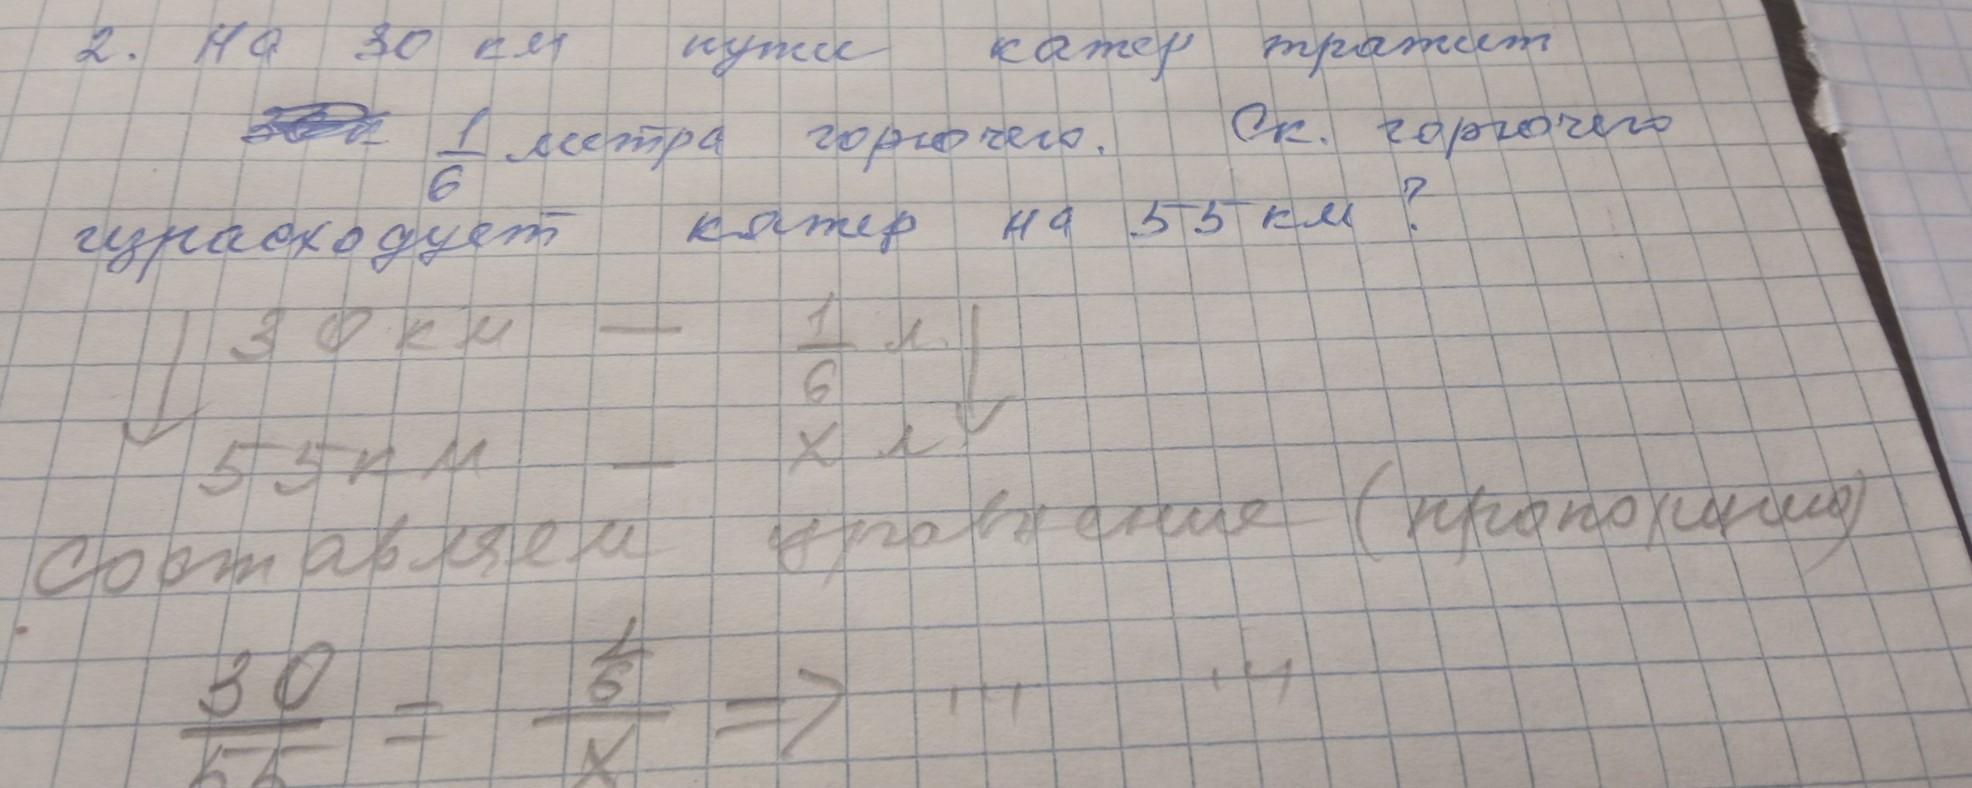 2. На 30 км пути катер тратит
1/6 литра горючего. Ск. горючего
израсходует катер на 55 км?
30 км — 1/6 л
55 км — x л
составляем уравнение (пропорцию)
30/55 = 1/6/x =>